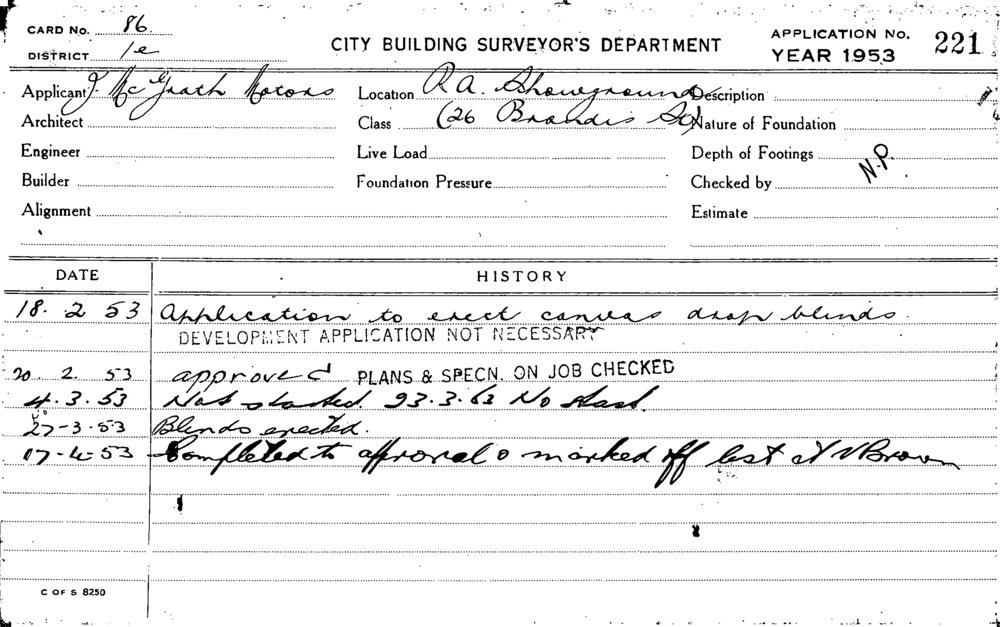 CARD No. 86.
DISTRICT 1e
CITY BUILDING SURVEYOR'S DEPARTMENT
APPLICATION No. 221
YEAR 1953
Applicant J. McGrath Motors
Location R.A. Showground
Description
Architect
Class (26 Brandis St)
Nature of Foundation
Engineer
Live Load
Depth of Footings
N.P.
Builder
Foundation Pressure
Checked by
Alignment
Estimate
DATE HISTORY
18. 2 53 Application to erect canvas drop blinds.
DEVELOPMENT APPLICATION NOT NECESSARY
20. 2. 53 approved PLANS & SPECN. ON JOB CHECKED
4. 3. 53 Not started. 23.3.53 No start.
27-3-53 Blinds erected.
17-4-53 Completed to approval & marked off list Brown
C OF S 8250